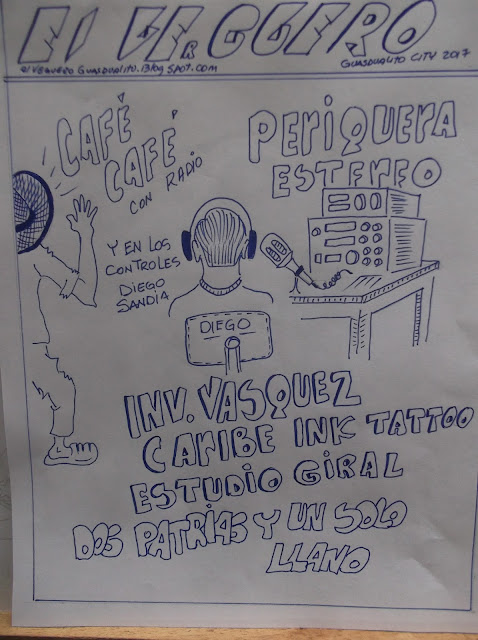 El VERGUERO
elveguero Guasdualito.Blog Spot.com
GUASDUALITO CITY 2017
CAFÉ
CAFÉ
CON RADIO
PERIQUERA
ESTEREO
Y EN LOS
CONTROLES
DIEGO
SANDIA
DIEGO
INV. VASQUEZ
CARIBE INK TATTOO
ESTUDIO GIRAL
DOS PATRIAS Y UN SOLO
LLANO